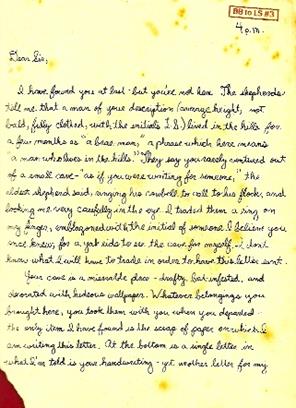 BB to LS #3
4 p.m.
Dear Sir,
I have found you at last - but you're not here. The shepherds
tell me that a man of your description (average height, not
bald, fully clothed, with the initials L.S.) lived in the hills for
a few months as "a bear man," a phrase which here means
"a man who lives in the hills." "They say you rarely ventured out
of a small cave - "as if you were waiting for someone," the
eldest shepherd said, ringing his cowbell to call to his flock, and
looking me very carefully in the eye. I traded them a ring on
my finger, emblazoned with the initial of someone I believe you
once knew, for a yak ride to see the cave for myself. I don't
know what I will have to trade in order to have this letter sent.
Your cave is a miserable place - drafty, bat-infested, and
decorated with hideous wallpaper. Whatever belongings you
brought here, you took them with you when you departed -
the only item I have found is the scrap of paper on which I
am writing this letter. At the bottom is a single letter in
what I'm told is your handwriting - yet another letter for my